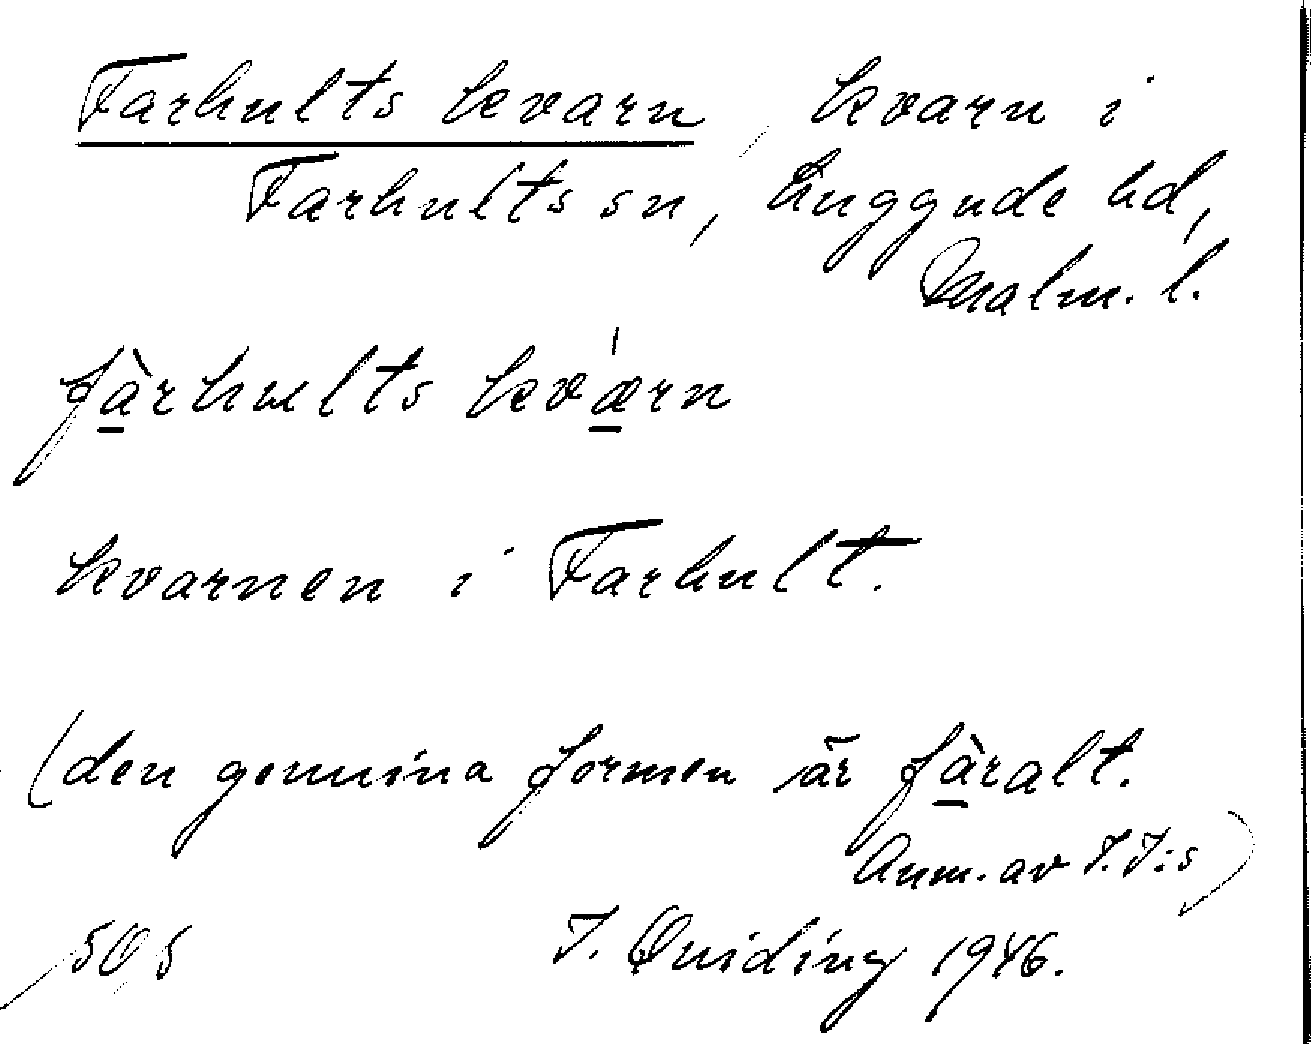 Farhults kvarn, kvarn i
Farhults sn, Luggude hd,
Malm. l.
fàrhults kvǽrn
kvarnen i Farhult.
(den genuina formen är fàralt.
Anm. av I. I:s)
I. Quiding 1946.